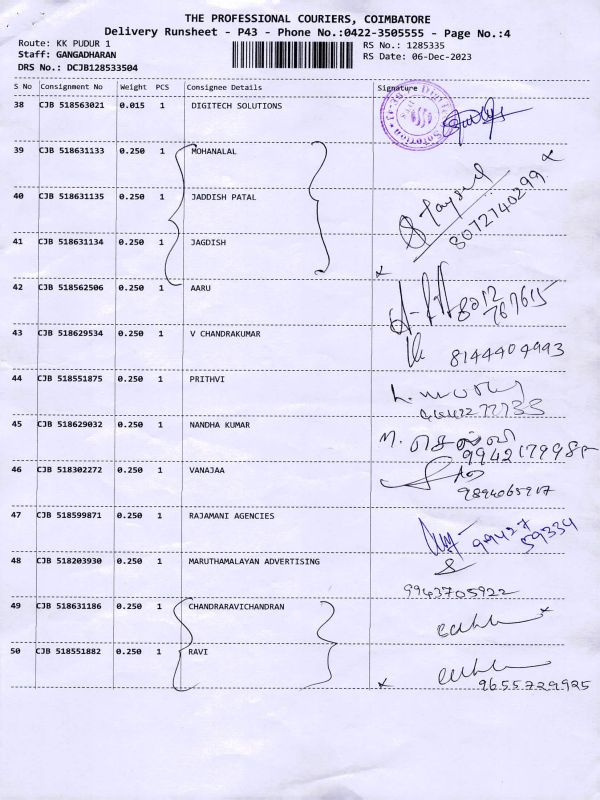 THE PROFESSIONAL COURIERS, COIMBATORE
Delivery Runsheet - P43 - Phone No.:0422-3505555 - Page No.:4
Route: KK PUDUR 1
RS No.: 1285335
Staff: GANGADHARAN
RS Date: 06-Dec-2023
DRS No.: DCJB128533504
S No Consignment No Weight PCS Consignee Details Signature
38 CJB 518563021 0.015 1 DIGITECH SOLUTIONS
39 CJB 518631133 0.250 1 MOHANALAL
40 CJB 518631135 0.250 1 JADDISH PATAL
8072740299
41 CJB 518631134 0.250 1 JAGDISH
42 CJB 518562506 0.250 1 AARU
8012
767615
43 CJB 518629534 0.250 1 V CHANDRAKUMAR
8144404993
44 CJB 518551875 0.250 1 PRITHVI
45 CJB 518629032 0.250 1 NANDHA KUMAR
46 CJB 518302272 0.250 1 VANAJAA
9894065917
47 CJB 518599871 0.250 1 RAJAMANI AGENCIES
99427
59334
48 CJB 518203930 0.250 1 MARUTHAMALAYAN ADVERTISING
9943705922
49 CJB 518631186 0.250 1 CHANDRARAVICHANDRAN
50 CJB 518551882 0.250 1 RAVI
9655729925